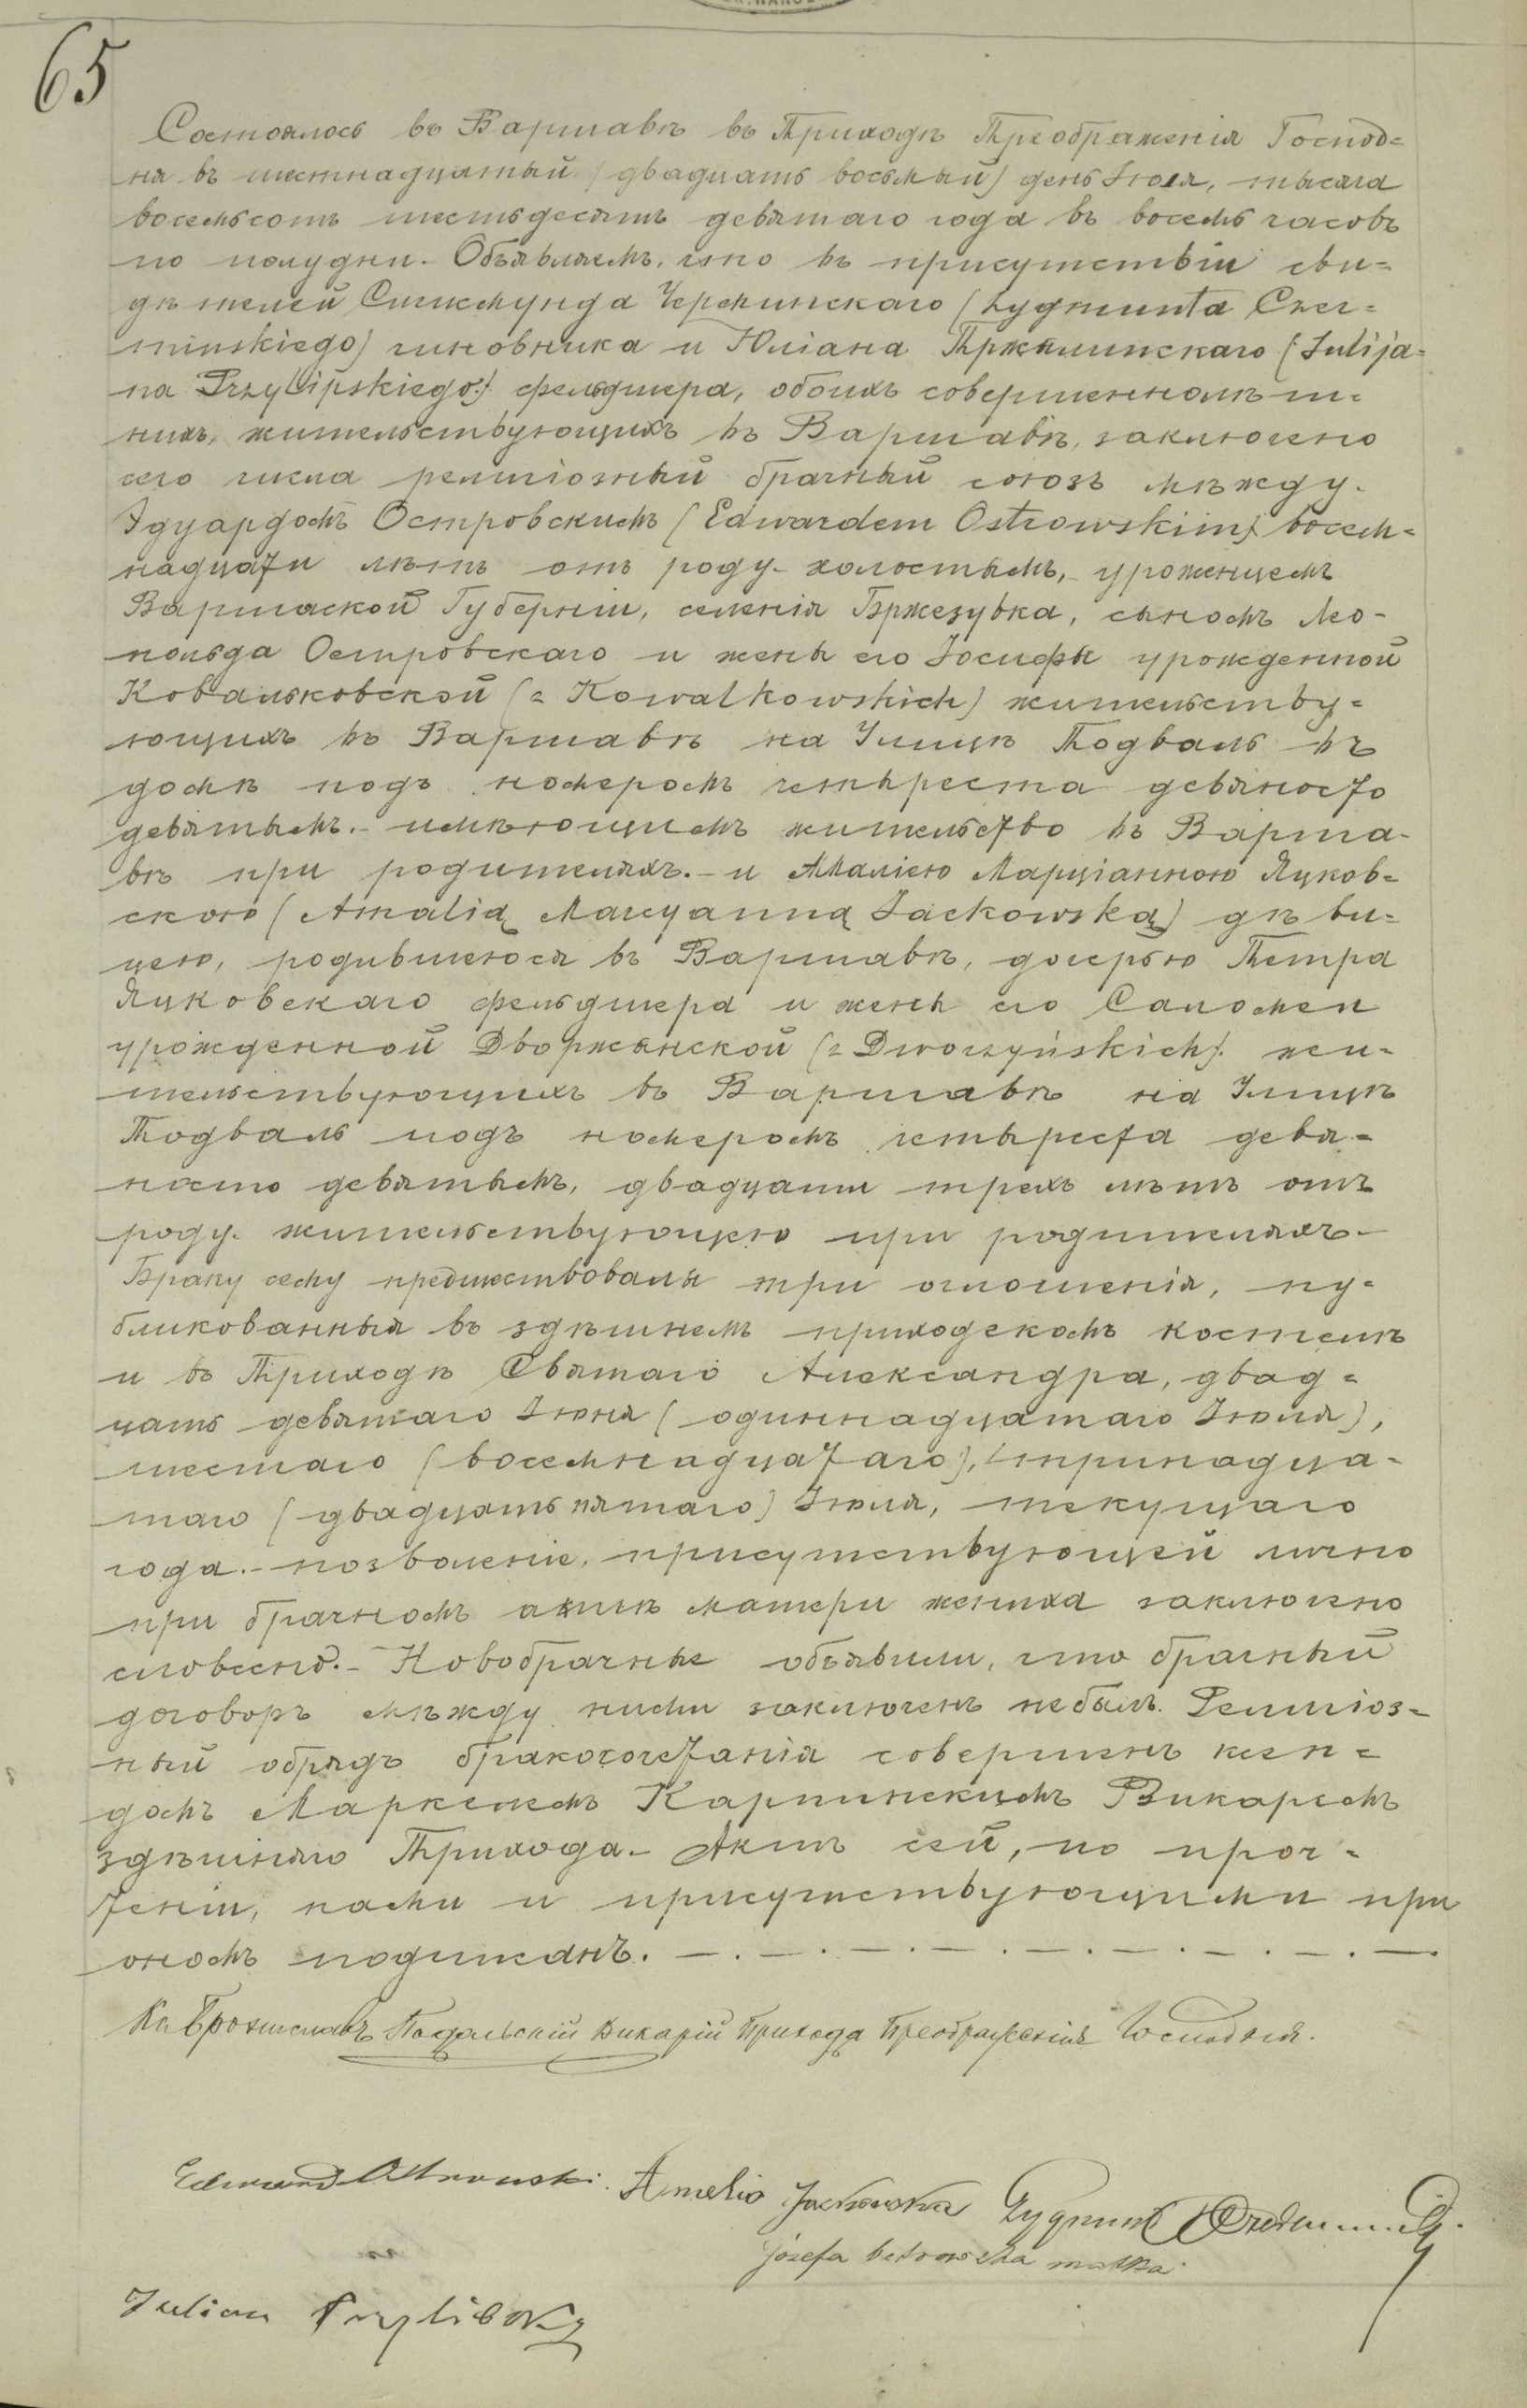 65
Состоялось въ Варшавѣ въ Приходѣ Преображенія Господ=
ня въ шестнадцатый (двадцать восьмый) день Іюля, тысяча
восемьсотъ шестьдесятъ девятаго года въ восемь часовъ
по полудни. Объявляемъ, что въ присутствіи сви=
дѣтелей Сигисмунда Черминскаго (Zygmunta Czer=
minskiego) чиновника и Юліана Пржилипскаго (Julija=
na Przylipskiego) фельдшера, обоихъ совершеннолѣт=
нихъ, жительствующихъ въ Варшавѣ, заключено
сего числа религіозный брачный союзъ мѣжду.
Эдуардомъ Островскимъ (Edwardem Ostrowskim) восем=
надцати лѣтъ отъ роду - холостымъ, - уроженцемъ
Варшаской Губерніи, селенія Бржезувка, сыномъ Лео-
польда Островскаго и жены его Іосифы урожденной
Ковальковской (z Kowalkowskich) жительству=
ющихъ въ Варшавѣ на Улицѣ Подваль въ
домѣ подъ номеромъ четыреста девяносто
девятымъ. - имѣющимъ жительство въ Варша-
вѣ при родителяхъ. - и Амаліею Марціанною Яцков=
скою (Amalią Marcyanną Jackowską) дѣви=
цею, родившеюся въ Варшавѣ, дочерью Петра
Яцковскаго фельдшера и жены его Саломеи
урожденной Дворжинской (z Dworzyńskich) жи=
тельствующихъ въ Варшавѣ на Улицѣ
Подваль подъ номеромъ четыреста девя=
носто девятымъ, двадцати трехъ лѣтъ отъ
роду. жительствующею при родителяхъ. -
Браку сему предшествовалы три оглошенія, пу=
бликованныя въ здѣшнемъ приходскомъ костелѣ
и въ Приходѣ Святаго Александра, двад=
цать девятаго Іюня (одиннадцатаго Іюля),
шестаго (восемнадцатаго), тринадца-
таго (двадцать пятаго) Іюля, текущаго
года. - позволеніе, присутствующей лично
при брачномъ актѣ матери жениха заключено
словесно. - Новобрачные объявили, что брачный
договоръ мѣжду ними заключенъ небылъ. Религіоз=
ный обрядъ бракосочетанія совершенъ ксен=
домъ Маркемъ Карпинскимъ Викаремъ
здѣшняго Прихода. - Актъ сей, по проч=
теніи, нами и присутствующими при
ономъ подписанъ. — . — . — . — . — . — . — . — . —
Кс Брониславъ Подольскій Викарій Прихода Преображенія Господня.
Edward Ostrowski. Amelia Jackowska Zygmunt
Józefa ostrowska matka
Julian Przylibsky